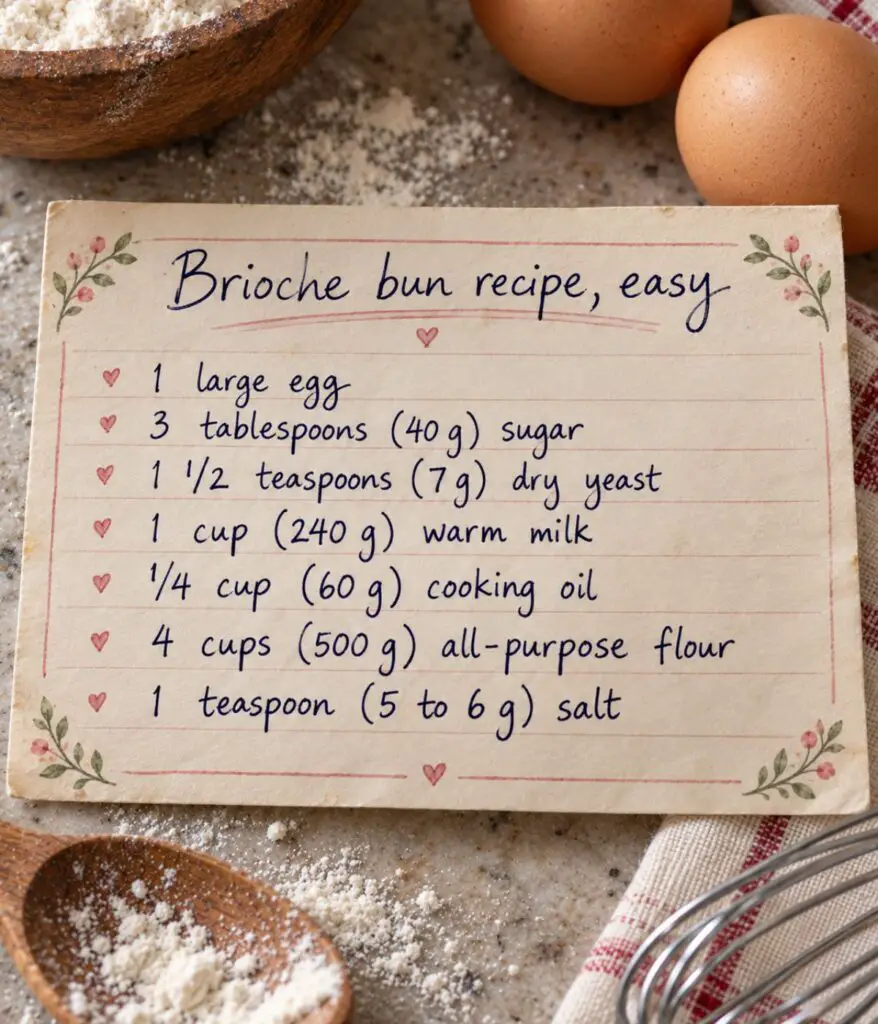 Brioche bun recipe, easy
1 large egg
3 tablespoons (40 g) sugar
1 1/2 teaspoons (7 g) dry yeast
1 cup (240 g) warm milk
1/4 cup (60 g) cooking oil
4 cups (500 g) all-purpose flour
1 teaspoon (5 to 6 g) salt